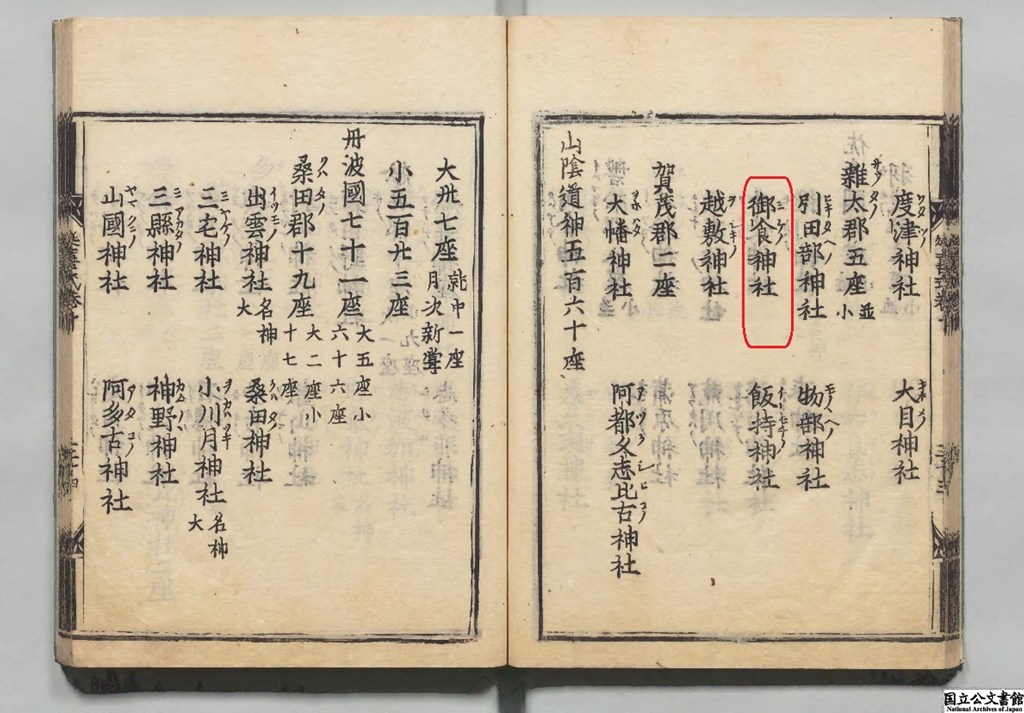 度津神社 大目神社
雜太郡五座 並小
引田部神社 物部神社
御食神社 飯持神社
越敷神社
賀茂郡二座
大幡神社 阿都久志比古神社
山陰道神五百六十座
大卅七座 就中一座月次新甞
小五百廿三座
丹波國七十一座 大五座小六十六座
桑田郡十九座 大二座小十七座
出雲神社 名神大 桑田神社
三宅神社 小川月神社 名神大
三縣神社 神野神社
山國神社 阿多古神社
国立公文書館
National Archives of Japan